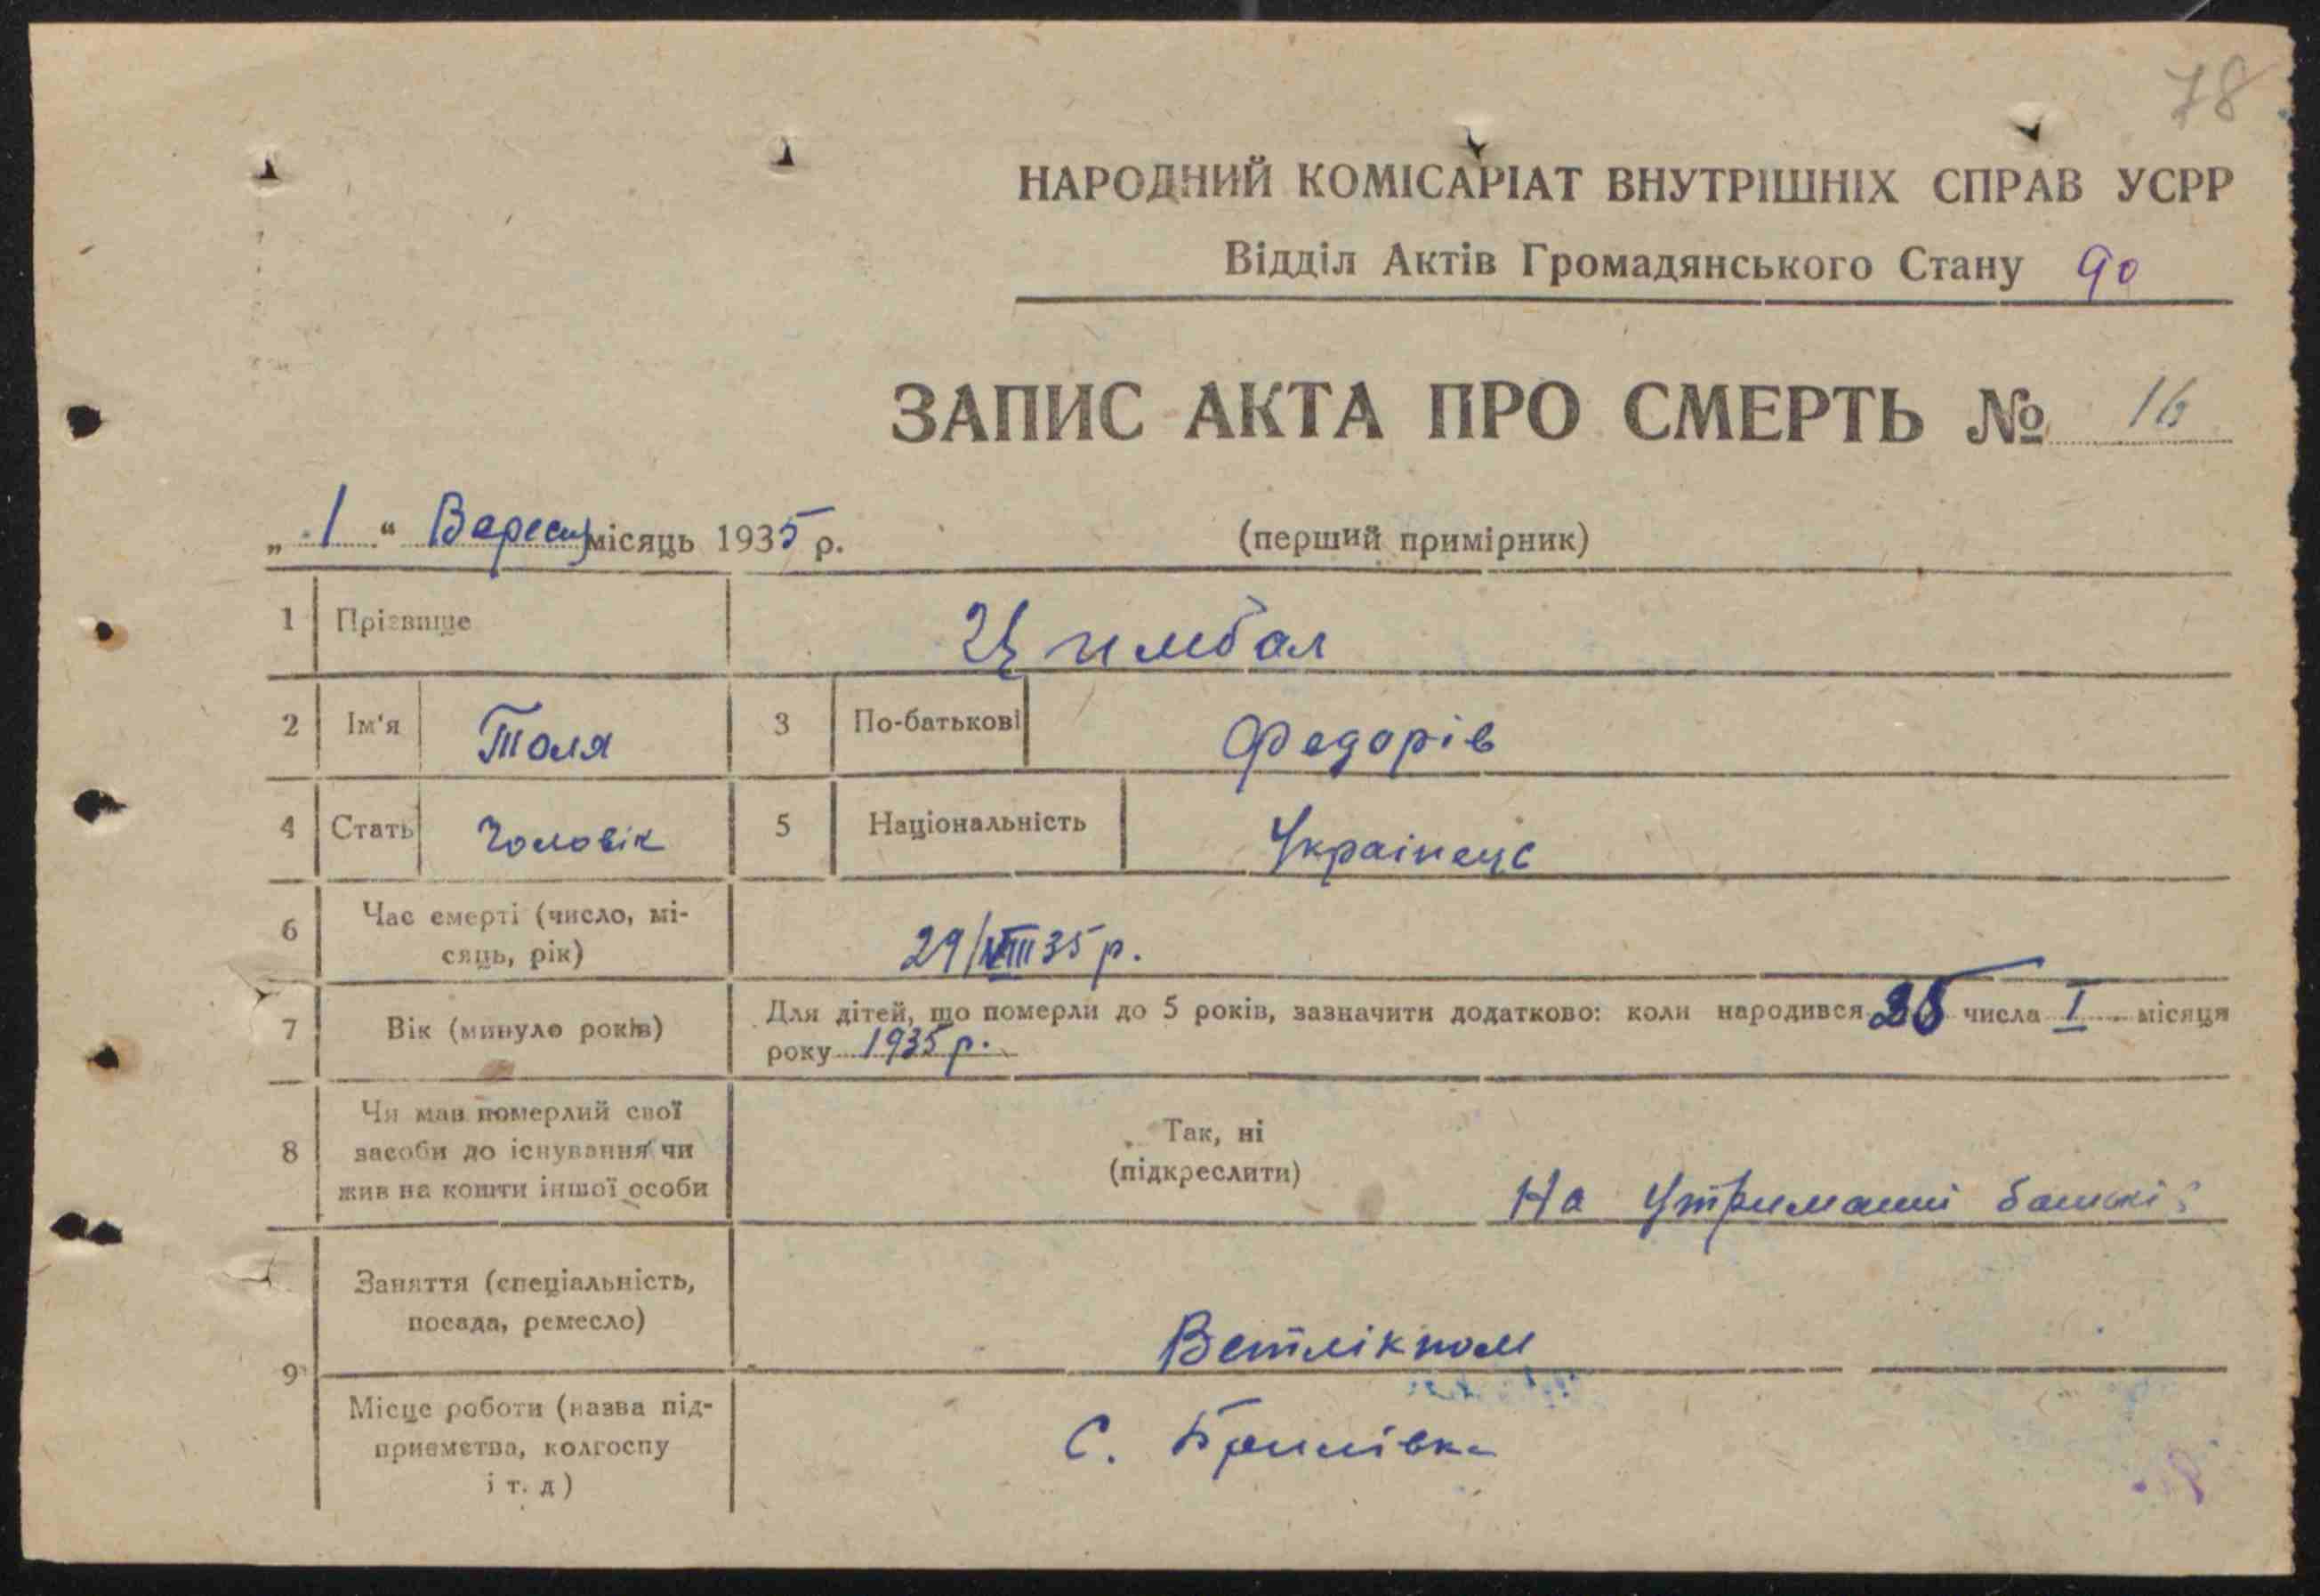 78
НАРОДНИЙ КОМІСАРІАТ ВНУТРІШНІХ СПРАВ УСРР
Відділ Актів Громадянського Стану 90
ЗАПИС АКТА ПРО СМЕРТЬ № 16
„ 1 “ Вересня місяць 1935 р. (перший примірник)
1 Прізвище Цимбал
2 Ім'я Толя 3 По-батькові Федорів
4 Стать Чоловік 5 Національність Українець
6 Час смерті (число, мі-
сяць, рік) 29/VIII 35 р.
7 Вік (минуло років) Для дітей, що померли до 5 років, зазначити додатково: коли народився числа I місяця
року 1935 р.
8 Чи мав померлий свої
засоби до існування чи
жив на кошти іншої особи
Так, ні
(підкреслити)
На утриманні батьків
9 Заняття (спеціальність,
посада, ремесло) Ветлікпом
Місце роботи (назва під-
приємства, колгоспу
і т. д)
С.